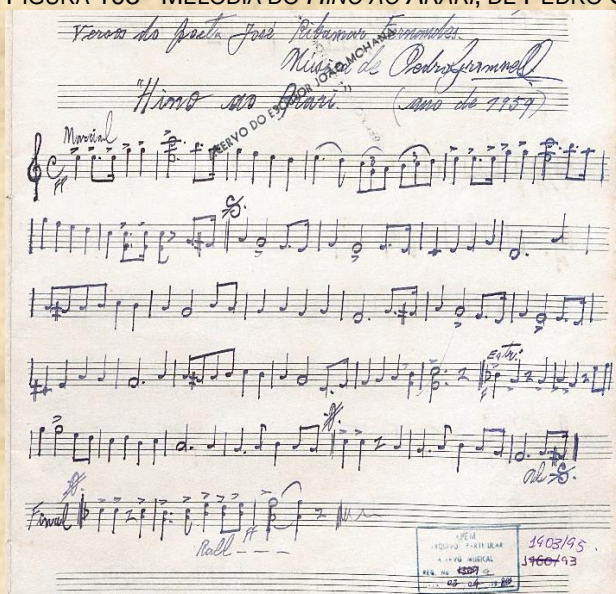 FIGURA 108 - MELODIA DO HINO AO ARARI, DE PEDRO G
Versos do Poeta José Ribamar Fernandes.
Música de Pedro Gramnell
"Hino ao Arari." (ano de 1959)
ACERVO DO ESCRITOR JOÃO MOHANA
Marcial
ff
3
3
Estr:
al
Final
Rall - - - -
ff
APEM
ARQUIVO PARTICULAR
ACERVO MUSICAL
REG. Nº 1389
1403/95
1460/93